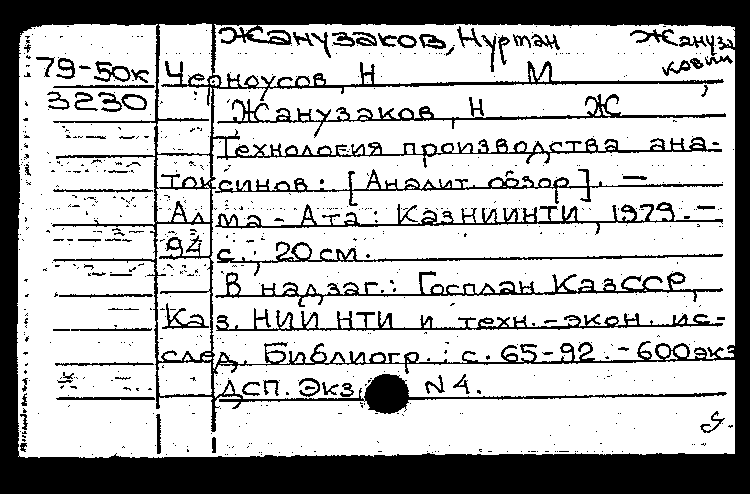 Жанузаков, Нуртан Жануза
кович
79-50к Черноусов, Н М ,
3230 Жанузаков, Н Ж
Технология производства ана-
токсинов: [Аналит. обзор]. —
Алма-Ата: КазНИИНТИ, 1979. —
94 с.; 20 см.
В надзаг.: Госплан КазССР,
Каз. НИИ НТИ и техн.-экон. ис-
след. Библиогр.: с. 65-92. - 600экз
ДСП. Экз. N 4.